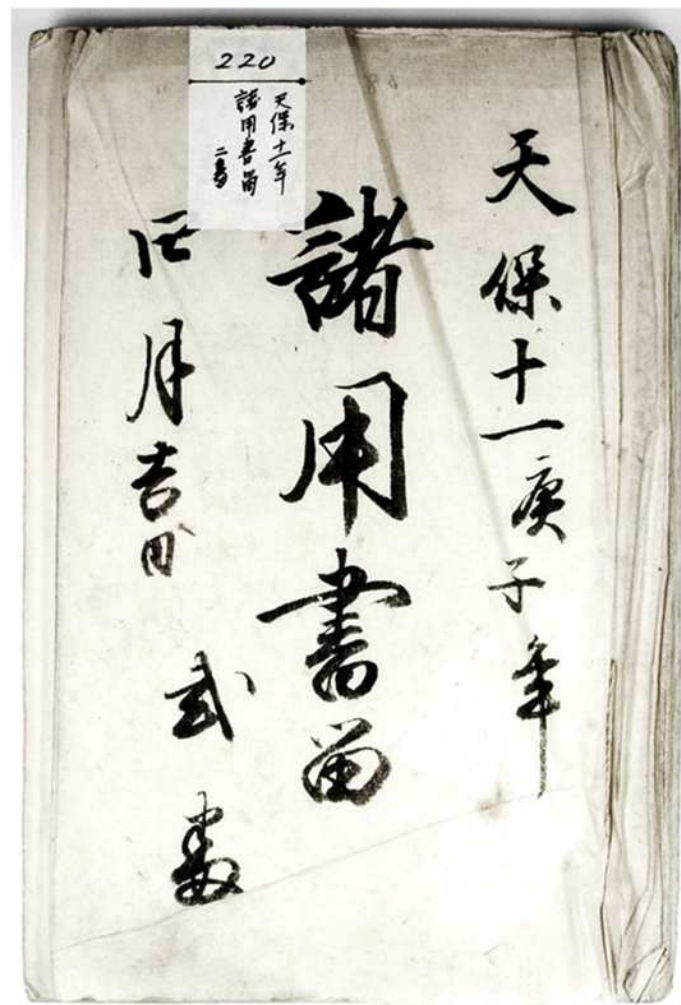 220
天保十一年
諸用書留
二番
天保十一庚子年
諸用書留
正月吉日
弐番